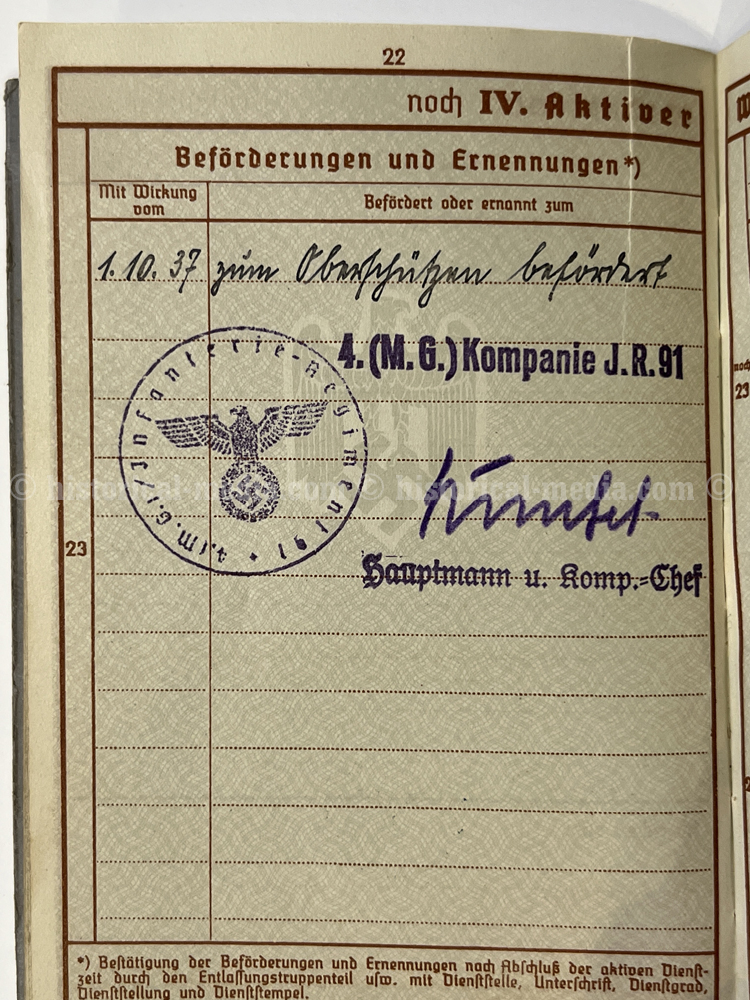 22
noch IV. Aktiver
Beförderungen und Ernennungen*)
Mit Wirkung
vom
Befördert oder ernannt zum
1.10.37 zum Oberschützen befördert
4. (M. G.) Kompanie J. R. 91
4. (M. G.) / Infanterie-Regiment 91
23
Hauptmann u. Komp.-Chef
*) Bestätigung der Beförderungen und Ernennungen nach Abschluß der aktiven Dienst-
zeit durch den Entlassungstruppenteil usw. mit Dienststelle, Unterschrift, Dienstgrad,
Dienststellung und Dienststempel.
noch
23